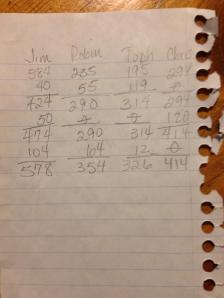 Jim Robin Toph Chris
584 235 195 294
40 55 119 0
424 290 314 294
50 0 0 120
474 290 314 414
104 64 12 0
578 354 326 414